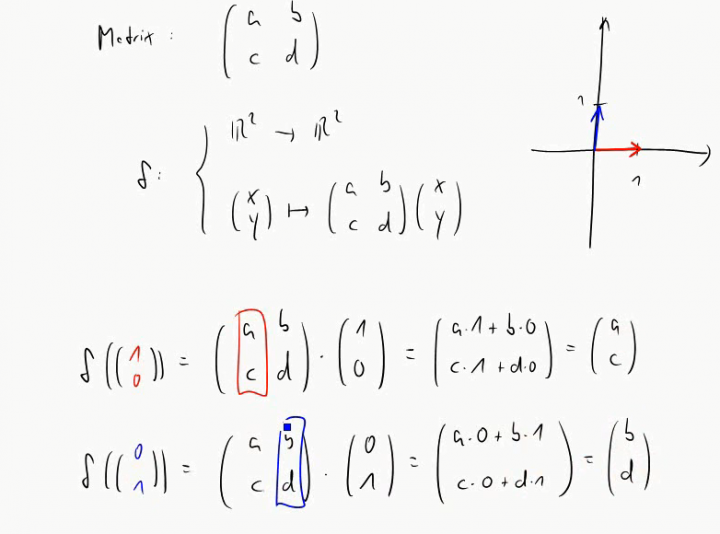 Matrix : (a b
c d)
f : { ℝ² → ℝ²
(x
y) ↦ (a b
c d) (x
y)
1
1
f((1
0)) = (a b
c d) · (1
0) = (a·1 + b·0
c·1 + d·0) = (a
c)
f((0
1)) = (a b
c d) · (0
1) = (a·0 + b·1
c·0 + d·1) = (b
d)